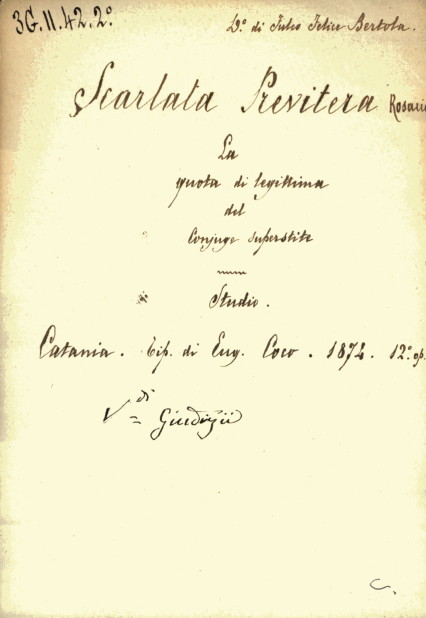 3G.11.42.2º
Dº. di Tulio Felice Bertola.
Scarlata Previtera Rosario
La
quota di legittima
del
Conjuge superstite
Studio.
Catania. Tip. di Eug. Coco. 1874. 12º. op.
V= di Giudizii
C.